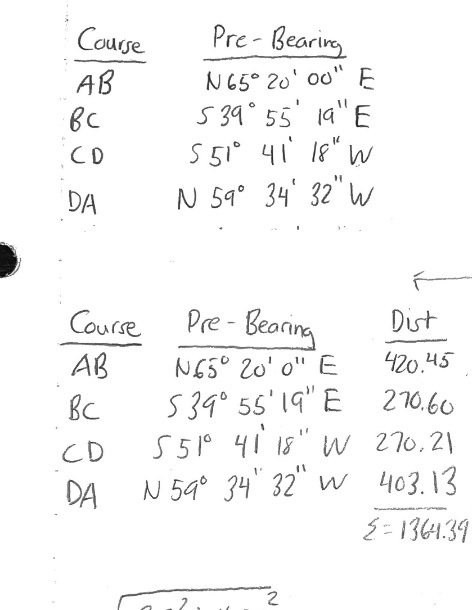 Course Pre-Bearing
AB N65° 20' 00" E
BC S 39° 55' 19" E
CD S 51° 41' 18" W
DA N 59° 34' 32" W
Course Pre-Bearing Dist
AB N65° 20' 0" E 420.45
BC S 39° 55' 19" E 270.60
CD S 51° 41' 18" W 270.21
DA N 59° 34" 32" W 403.13
Σ = 1364.39